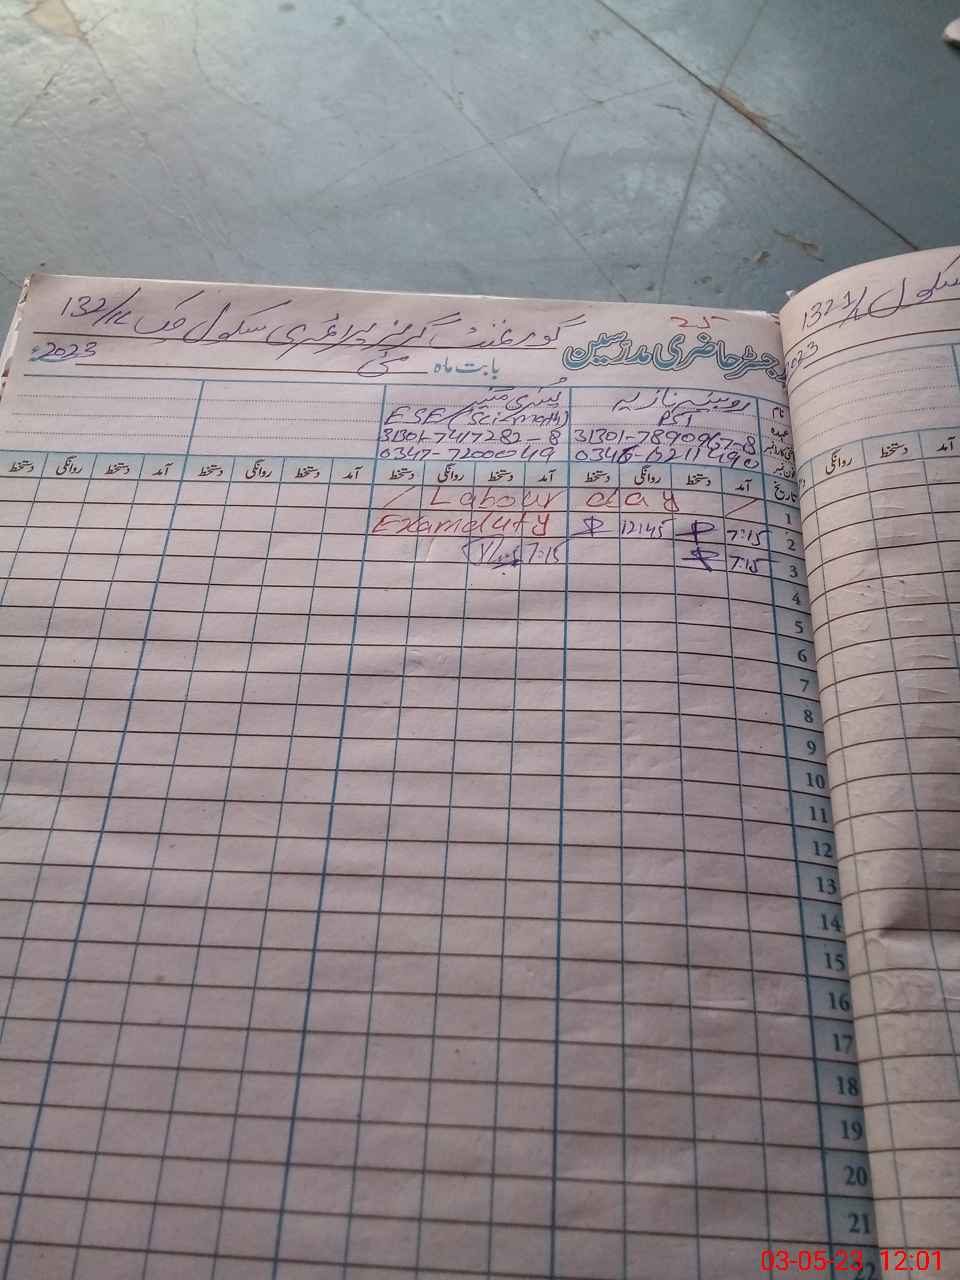 25
رجسٹر حاضری مدرسین
گورنمنٹ گرلز پرائمری سکول چک 132/1L
بابت ماہ مئی 2023ء
نام روبینہ نازیہ
عہدہ PST ESE (Sci-math)
31301-7890967-8 31301-7417282-8
فون نمبر 0347-7200049
تاریخ آمد دستخط روانگی دستخط آمد دستخط روانگی دستخط آمد دستخط روانگی دستخط آمد دستخط روانگی دستخط
1 Labour day
2 7:15 12:45 Exam duty
3 7:15 7:15
4
5
6
7
8
9
10
11
12
13
14
15
16
17
18
19
20
21
سکول 132/1L
2023
آمد دستخط روانگی
03-05-23 12:01